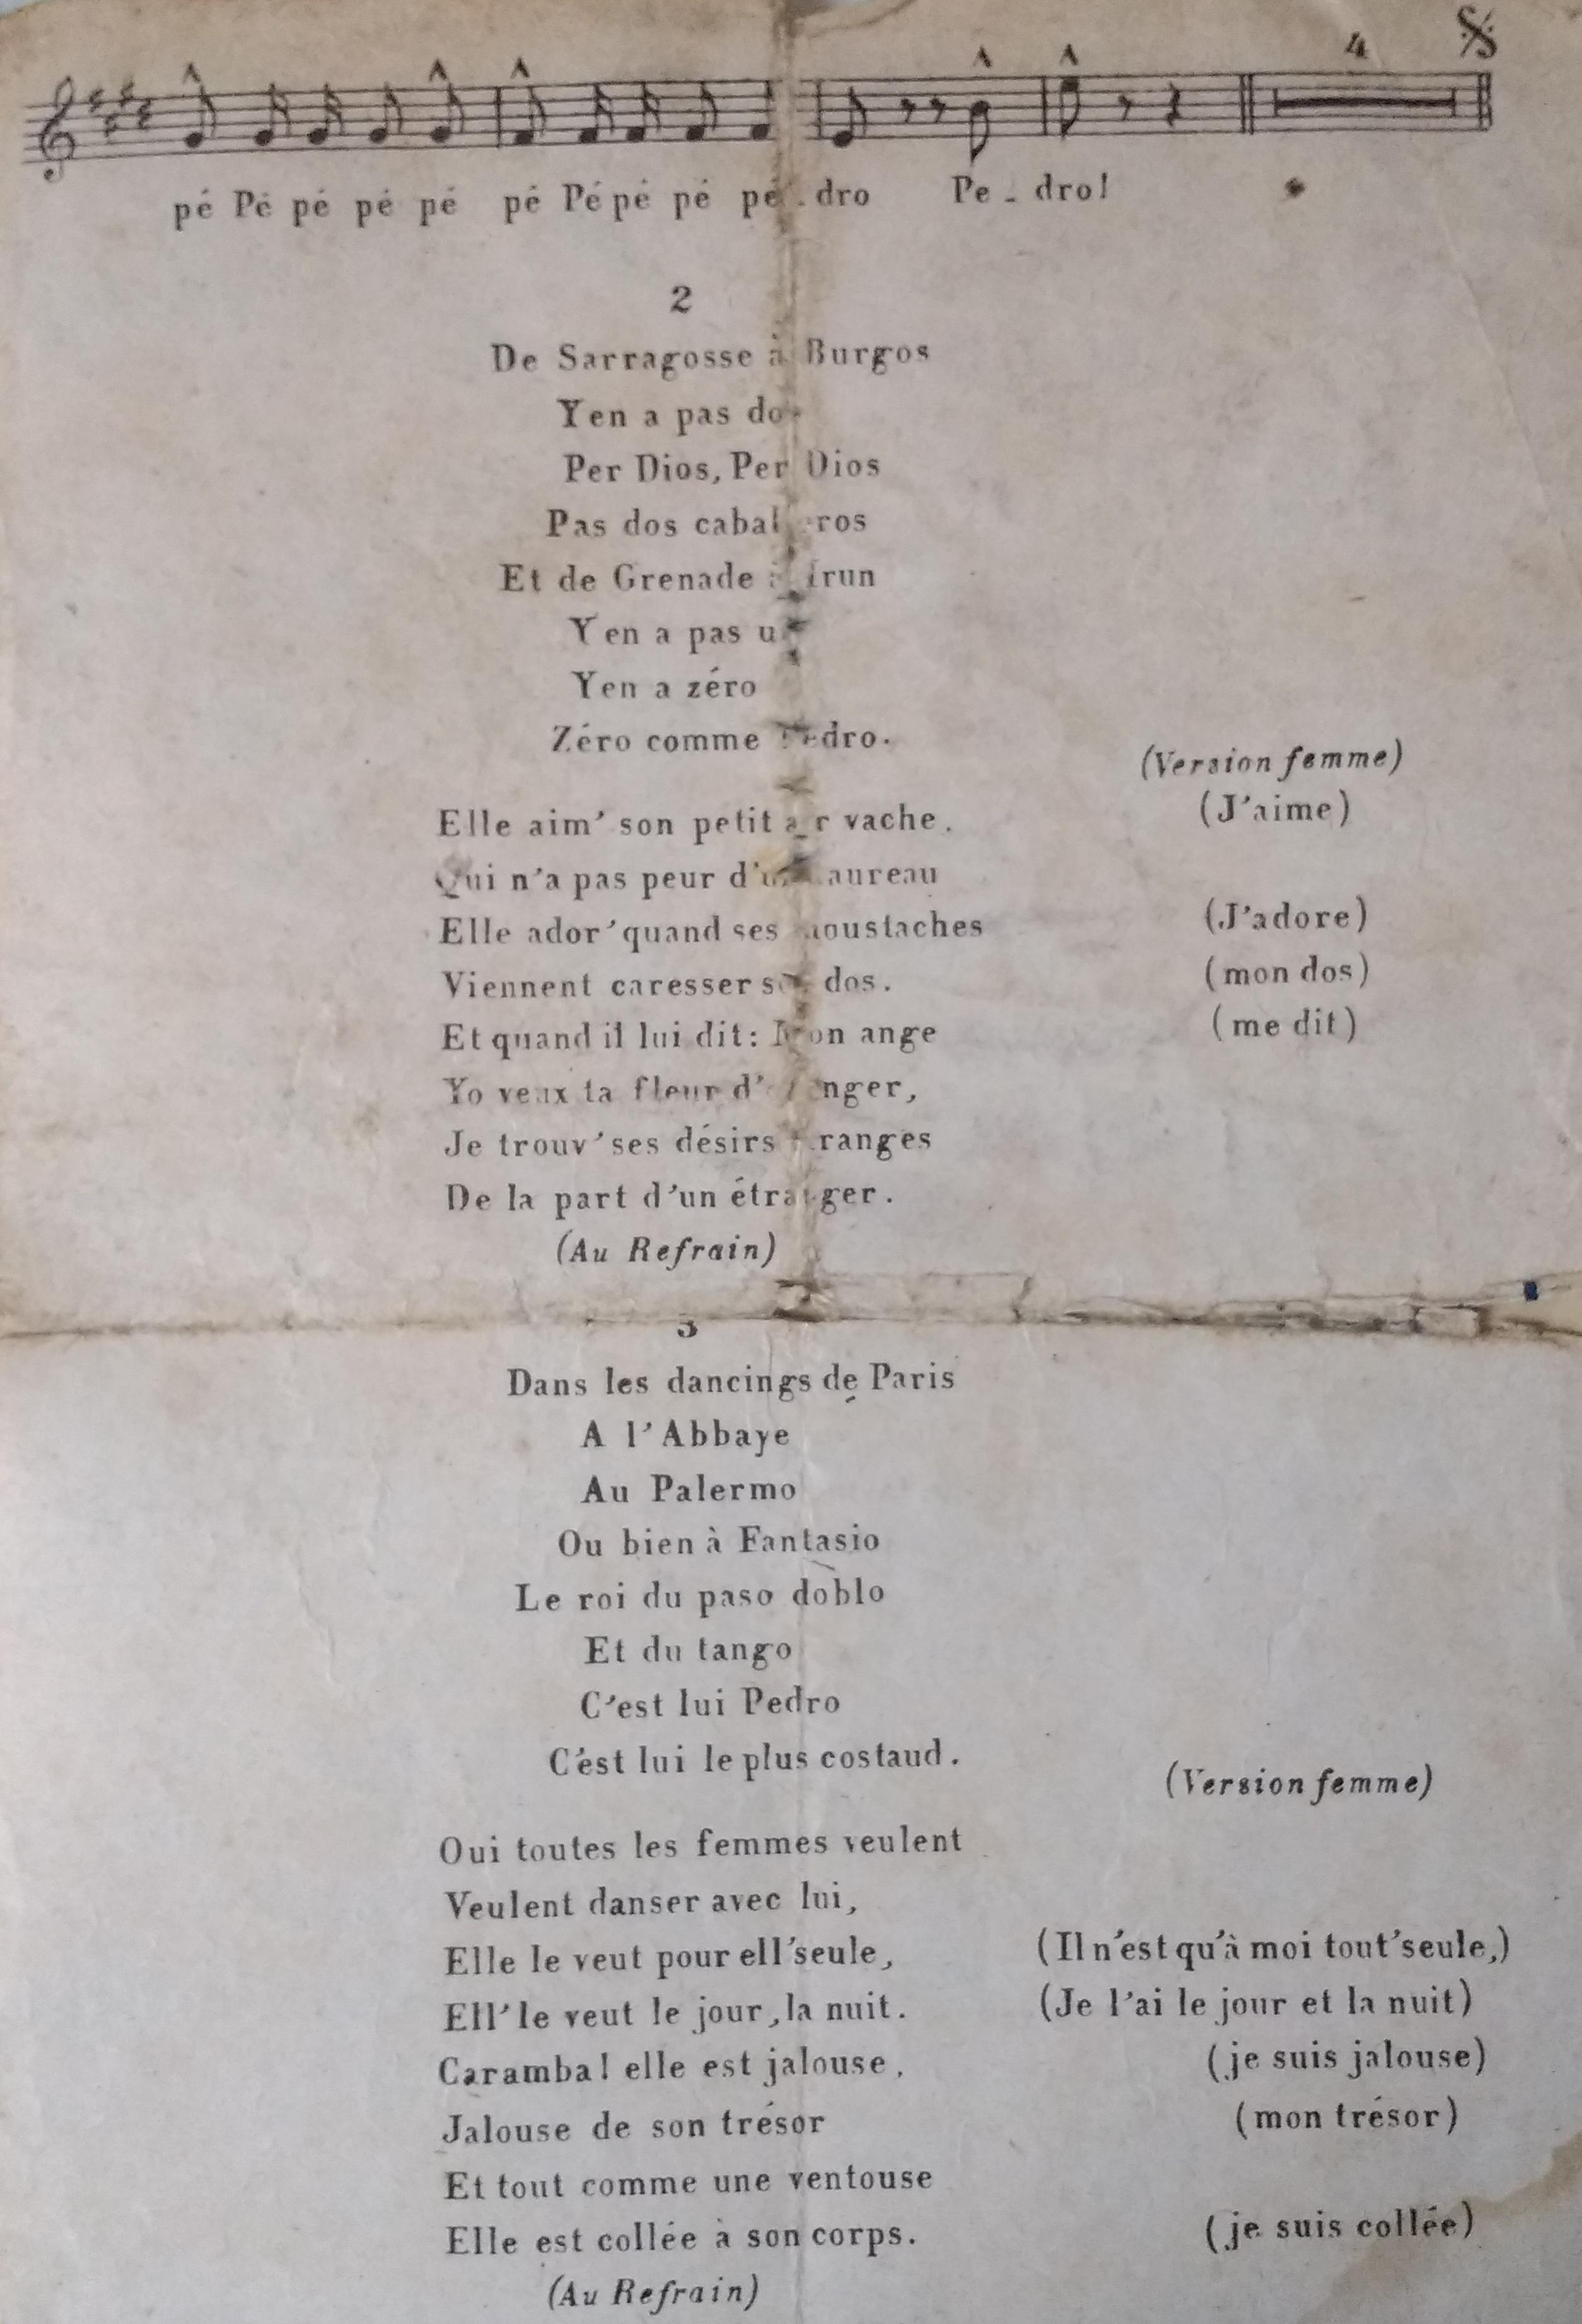 4
pé Pé pé pé pé pé Pé pé pé pé - dro Pe - dro!
2
De Sarragosse à Burgos
Y en a pas dos
Per Dios, Per Dios
Pas dos caballeros
Et de Grenade à Irun
Y en a pas
Y en a zéro
Zéro comme Pedro.
(Version femme)
Elle aim' son petit air vache. (J'aime)
Qui n'a pas peur d'un taureau
Elle ador' quand ses moustaches (J'adore)
Viennent caresser son dos. (mon dos)
Et quand il lui dit: Mon ange (me dit)
Yo veux ta fleur d'oranger,
Je trouv' ses désirs étranges
De la part d'un étranger.
(Au Refrain)
3
Dans les dancings de Paris
A l'Abbaye
Au Palermo
Ou bien à Fantasio
Le roi du paso doblo
Et du tango
C'est lui Pedro
C'est lui le plus costaud.
(Version femme)
Oui toutes les femmes veulent
Veulent danser avec lui,
Elle le veut pour ell' seule, (Il n'est qu'à moi tout' seule,)
Ell' le veut le jour, la nuit. (Je l'ai le jour et la nuit)
Caramba! elle est jalouse, (je suis jalouse)
Jalouse de son trésor (mon trésor)
Et tout comme une ventouse
Elle est collée à son corps. (je suis collée)
(Au Refrain)